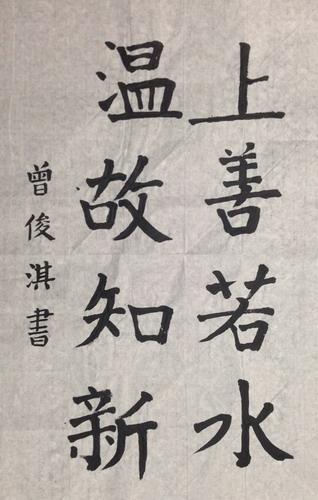 上善若水
温故知新
曾俊淇書